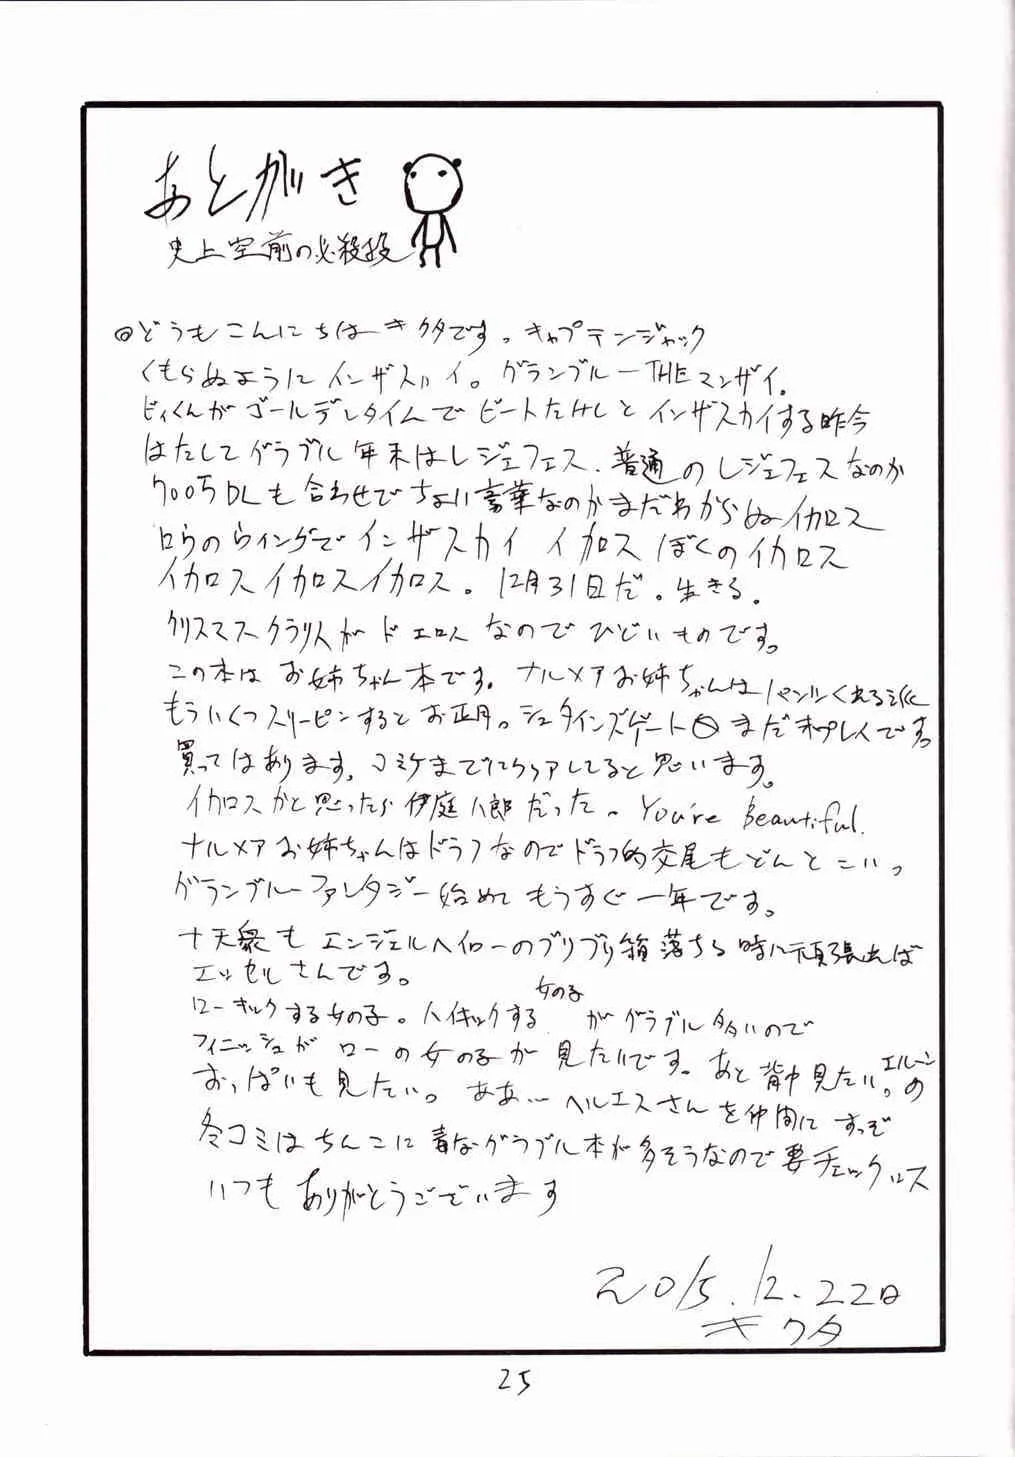 あとがき
史上空前の必殺技
◎どうもこんにちはキクタです。キャプテンジャック
くもらぬようにインザスカイ。グランブルーTHEマンザイ。
ビィくんがゴールデンタイムでビートたけしとインザスカイする昨今
はたしてグラブル年末はレジェフェス、普通のレジェフェスなのか
700万DLも合わせでちょい豪華なのかまだわからぬイカロス
ロウのウィングでインザスカイ イカロス ぼくのイカロス
イカロスイカロスイカロス。12月31日だ。生きる。
クリスマスクラリスがドエロスなのでひどいものです。
この本はお姉ちゃん本です。ナルメアお姉ちゃんはパンツくれる派
もういくつスリーピンするとお正月。シュタインズゲート0まだ未プレイです。
買ってはあります、コミケまでにクリアしてると思います。
イカロスかと思ったら伊庭八郎だった。You're Beautiful.
ナルメアお姉ちゃんはドラフなのでドラフ的交尾もどんとこいっ
グランブルーファンタジー始めてもうすぐ一年です。
十天衆もエンジェルヘイローのブリブリ箱落ちる時に頑張れば
エッセルさんです。
ローキックする女の子。ハイキックする女の子がグラブル多いので
フィニッシュがローの女の子が見たいです。あと背中見たい。エルーンの
おっぱいも見たい。ああ…ヘルエスさんを仲間にすっぞ
冬コミはちんこに毒なグラブル本が多そうなので要チェックロス
いつもありがとうございます
2015.12.22日
キクタ
25